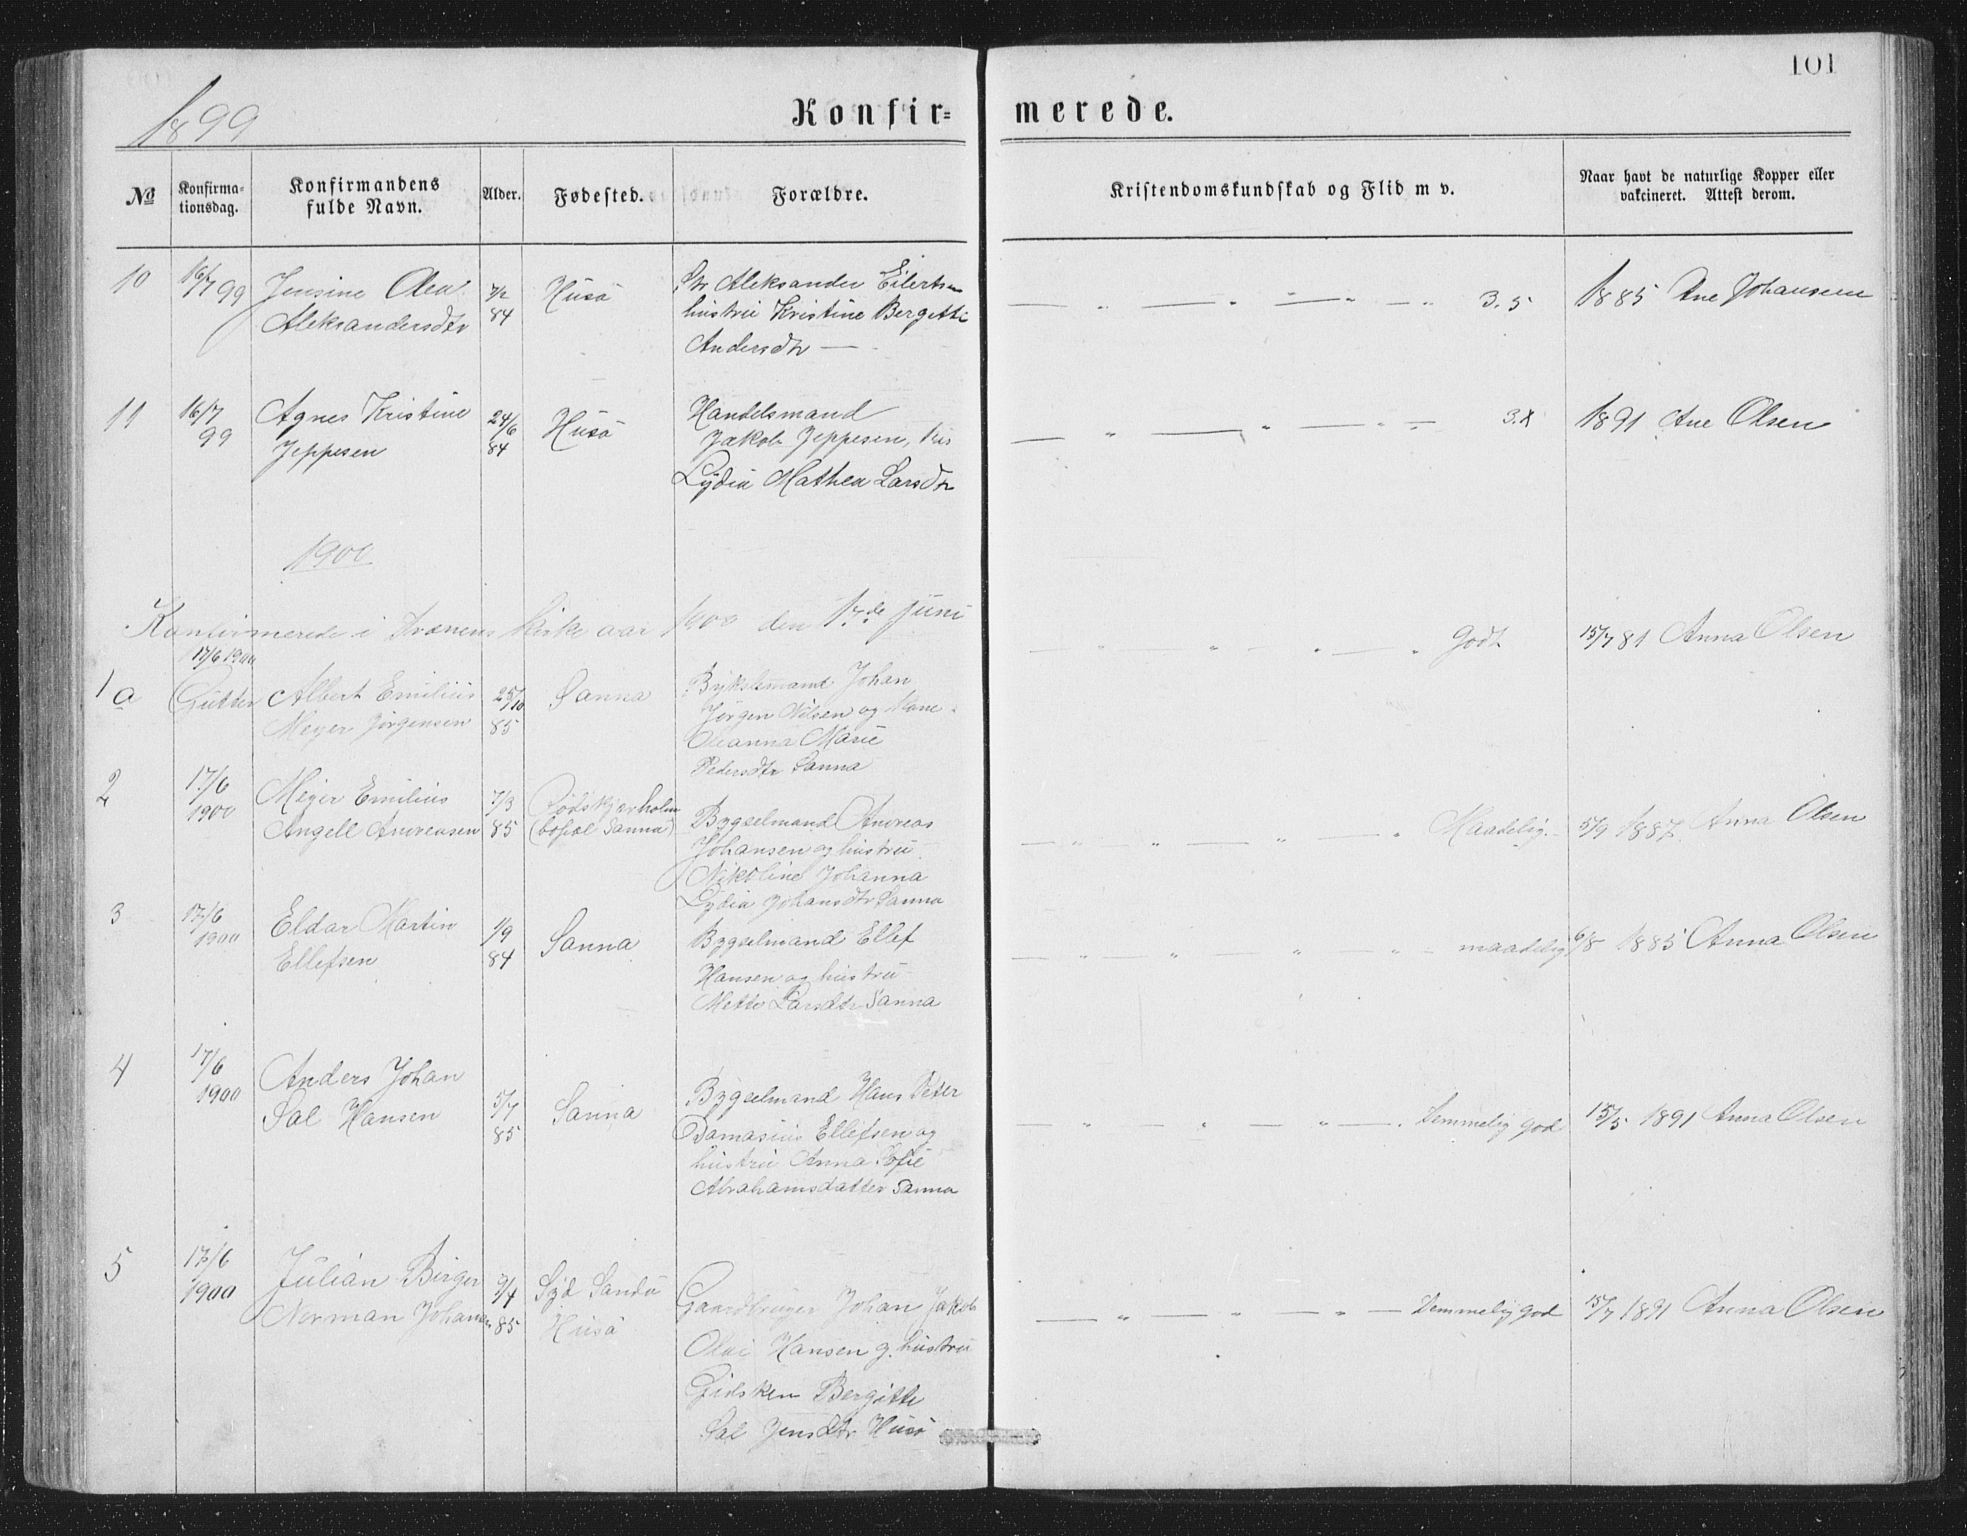 101
1899
Konfir- merede.
№ Konfirma- tionsdag. Konfirmandens fulde Navn. Alder. Fødested. Forældre. Kristendomskundskab og Flid m v. Naar havt de naturlige Kopper eller vakcineret. Attest derom.
10 16/7 99 Jensine Olea 7/2 Husö Aleksander Eilertsen 3.5 1885 Ane Johansen
Aleksandersdtr 84 hustru Kristine Bergitte
Andersdtr —
11 16/7 Agnes Kristine 24/6 Husö Handelsmand 1891 Ane Olsen
99 Jeppesen 84 Jakob Jeppesen,
Lydia Mathea Larsdtr
1900
Konfirmerede i Trænens Kirke aar 1900 den 17de juni
17/6 1900 Godt 15/7 81 Anna Olsen
1 a Gutter Albert Emilius 25/10 Sanna Bykslemand Johan
Meyer Jörgensen 85 Jörgen Nilsen og
Oleanna Marie
Pedersdtr Sanna
2 17/6 Meyer Emilius 7/3 Bygselmand Andreas Maadelig. 5/9 1887 Anna Olsen
1900 Angell Andreasen 85 (bofæl Sanna) Johansen og hustru
Nikoline Johanna
Lydia Johansdtr Sanna
3 17/6 Eldar Martin 1/9 Sanna Bygselmand Ellef maadelig 6/8 1885 Anna Olsen
1900 Ellefsen 84 Hansen og hustru
Mette Larsdtr Sanna
4 17/6 Anders Johan 5/7 Sanna Bygselmand Hans Peter Temmelig god 15/5 1891 Anna Olsen
1900 Sal Hansen 85 Damasius Ellefsen og
hustru Anna Sofie
Abrahamsdatter Sanna
5 17/6 Julian Birger 9/4 Syd Sandö Gaardbruger Johan Jakob Temmelig god 15/7 1891 Anna Olsen
1900 Norman Johansen 85 Husö Olai Hansen og hustru
Gidsken Bergitte
Sal Jensdtr Husö